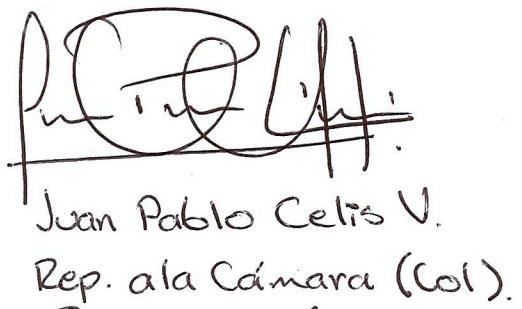 Juan Pablo Celis V.
Rep. a la Cámara (Col).